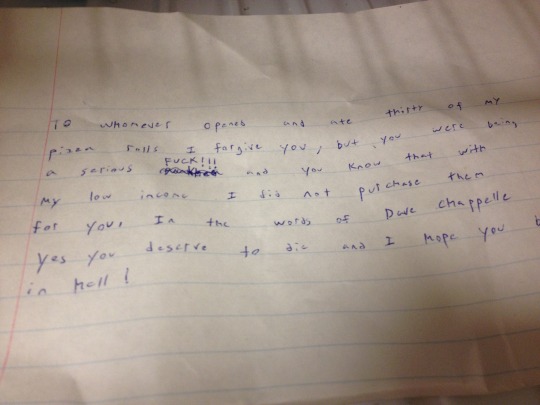 To whomever opened and ate thirty of my
pizza rolls I forgive you, but you were being
a serious FUCK!!! and you know that with
my low income I did not purchase them
for you. In the words of Dave Chappelle
yes you deserve to die and I hope you b
in Hell!